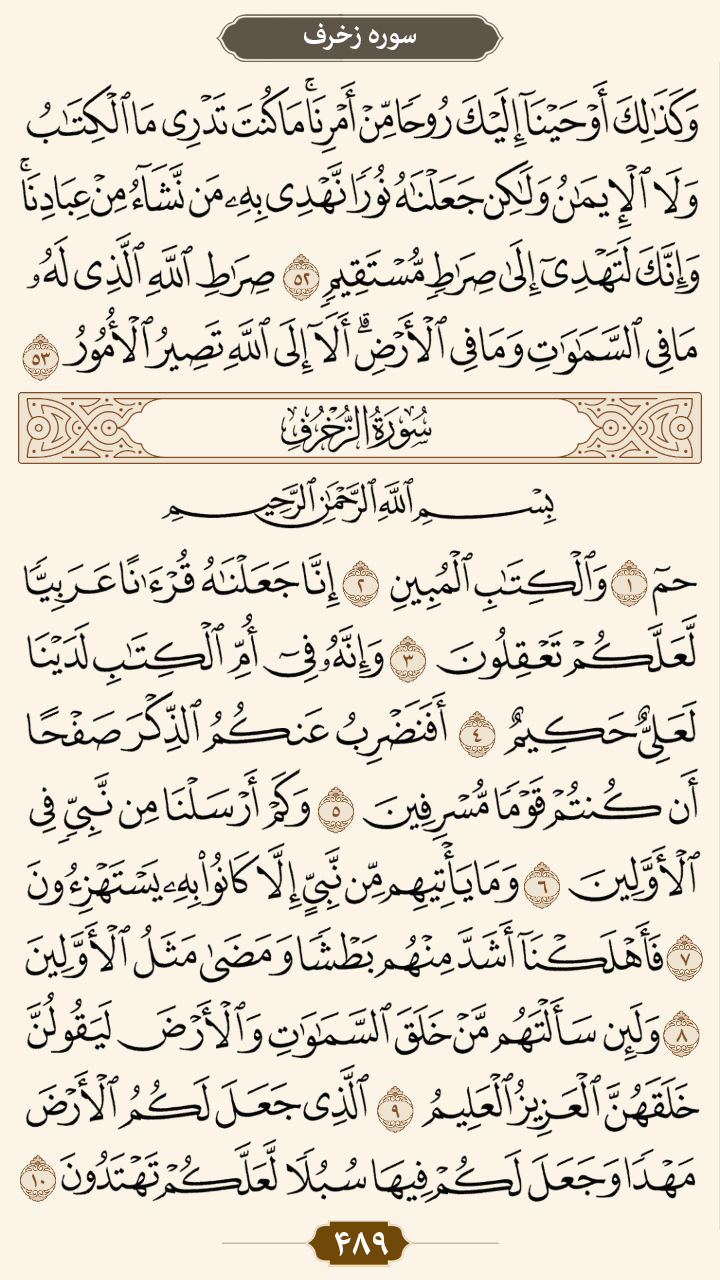 سوره زخرف
وَكَذَٰلِكَ أَوْحَيْنَآ إِلَيْكَ رُوحًا مِّنْ أَمْرِنَا ۚ مَا كُنتَ تَدْرِى مَا ٱلْكِتَٰبُ
وَلَا ٱلْإِيمَٰنُ وَلَٰكِن جَعَلْنَٰهُ نُورًا نَّهْدِى بِهِۦ مَن نَّشَآءُ مِنْ عِبَادِنَا ۚ
وَإِنَّكَ لَتَهْدِىٓ إِلَىٰ صِرَٰطٍ مُّسْتَقِيمٍ ٥٢ صِرَٰطِ ٱللَّهِ ٱلَّذِى لَهُۥ
مَا فِى ٱلسَّمَٰوَٰتِ وَمَا فِى ٱلْأَرْضِ ۗ أَلَآ إِلَى ٱللَّهِ تَصِيرُ ٱلْأُمُورُ ٥٣
سُورَةُ الزُّخْرُفِ
بِسْمِ ٱللَّهِ ٱلرَّحْمَٰنِ ٱلرَّحِيمِ
حمٓ ١ وَٱلْكِتَٰبِ ٱلْمُبِينِ ٢ إِنَّا جَعَلْنَٰهُ قُرْءَٰنًا عَرَبِيًّا
لَّعَلَّكُمْ تَعْقِلُونَ ٣ وَإِنَّهُۥ فِىٓ أُمِّ ٱلْكِتَٰبِ لَدَيْنَا
لَعَلِىٌّ حَكِيمٌ ٤ أَفَنَضْرِبُ عَنكُمُ ٱلذِّكْرَ صَفْحًا
أَن كُنتُمْ قَوْمًا مُّسْرِفِينَ ٥ وَكَمْ أَرْسَلْنَا مِن نَّبِىٍّ فِى
ٱلْأَوَّلِينَ ٦ وَمَا يَأْتِيهِم مِّن نَّبِىٍّ إِلَّا كَانُوا۟ بِهِۦ يَسْتَهْزِءُونَ
٧ فَأَهْلَكْنَآ أَشَدَّ مِنْهُم بَطْشًا وَمَضَىٰ مَثَلُ ٱلْأَوَّلِينَ
٨ وَلَئِن سَأَلْتَهُم مَّنْ خَلَقَ ٱلسَّمَٰوَٰتِ وَٱلْأَرْضَ لَيَقُولُنَّ
خَلَقَهُنَّ ٱلْعَزِيزُ ٱلْعَلِيمُ ٩ ٱلَّذِى جَعَلَ لَكُمُ ٱلْأَرْضَ
مَهْدًا وَجَعَلَ لَكُمْ فِيهَا سُبُلًا لَّعَلَّكُمْ تَهْتَدُونَ ١٠
۴۸۹